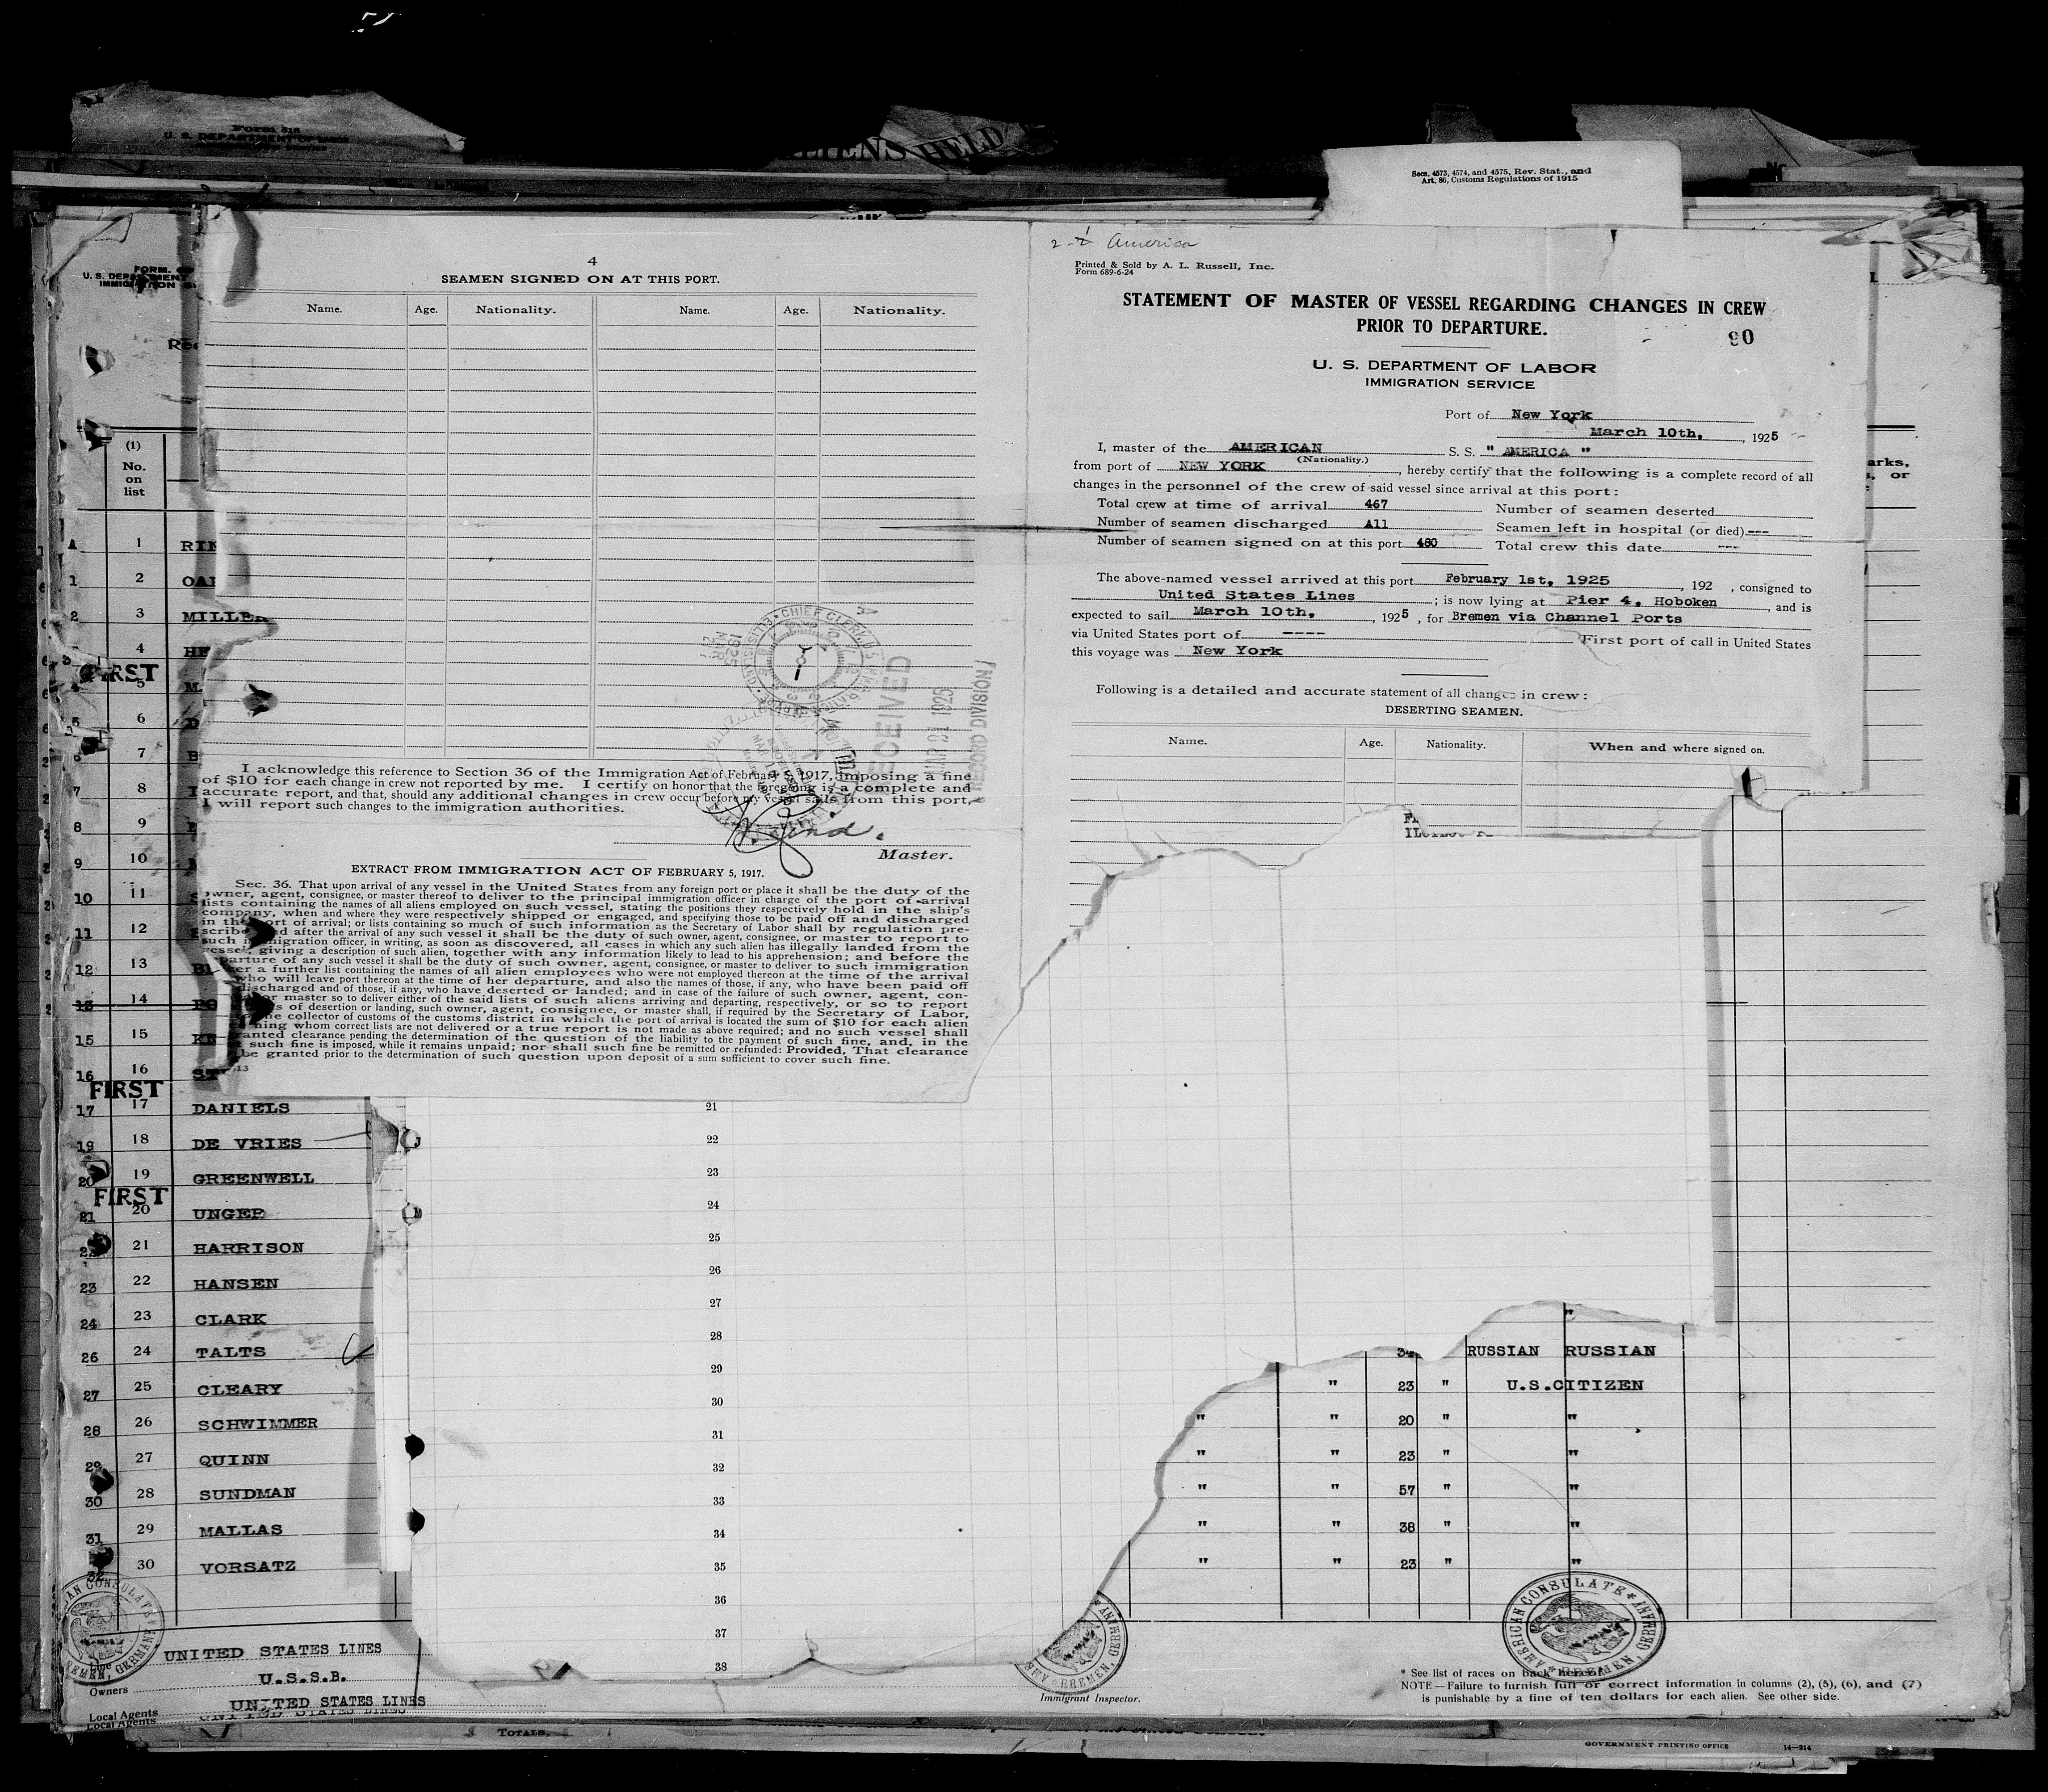 Form 518
U. S. DEPARTMENT OF LABOR
ALIENS HELD
Secs. 4573, 4574, and 4575, Rev. Stat., and
Art. 86, Customs Regulations of 1915
4
SEAMEN SIGNED ON AT THIS PORT.
Name. Age. Nationality. Name. Age. Nationality.
I acknowledge this reference to Section 36 of the Immigration Act of February 5, 1917, imposing a fine
of $10 for each change in crew not reported by me. I certify on honor that the foregoing is a complete and
accurate report, and that, should any additional changes in crew occur before my vessel sails from this port,
I will report such changes to the immigration authorities.
Master.
RECEIVED
MAR 31 1925
RECORD DIVISION
EXTRACT FROM IMMIGRATION ACT OF FEBRUARY 5, 1917.
Sec. 36. That upon arrival of any vessel in the United States from any foreign port or place it shall be the duty of the
owner, agent, consignee, or master thereof to deliver to the principal immigration officer in charge of the port of arrival
lists containing the names of all aliens employed on such vessel, stating the positions they respectively hold in the ship's
company, when and where they were respectively shipped or engaged, and specifying those to be paid off and discharged
in the port of arrival; or lists containing so much of such information as the Secretary of Labor shall by regulation pre-
scribe; and after the arrival of any such vessel it shall be the duty of such owner, agent, consignee, or master to report to
such immigration officer, in writing, as soon as discovered, all cases in which any such alien has illegally landed from the
vessel, giving a description of such alien, together with any information likely to lead to his apprehension; and before the
parture of any such vessel it shall be the duty of such owner, agent, consignee, or master to deliver to such immigration
er a further list containing the names of all alien employees who were not employed thereon at the time of the arrival
who will leave port thereon at the time of her departure, and also the names of those, if any, who have been paid off
discharged and of those, if any, who have deserted or landed; and in case of the failure of such owner, agent, con-
or master so to deliver either of the said lists of such aliens arriving and departing, respectively, or so to report
s of desertion or landing, such owner, agent, consignee, or master shall, if required by the Secretary of Labor,
he collector of customs of the customs district in which the port of arrival is located the sum of $10 for each alien
ning whom correct lists are not delivered or a true report is not made as above required; and no such vessel shall
ranted clearance pending the determination of the question of the liability to the payment of such fine, and, in the
such fine is imposed, while it remains unpaid; nor shall such fine be remitted or refunded: Provided, That clearance
be granted prior to the determination of such question upon deposit of a sum sufficient to cover such fine.
America
Printed & Sold by A. L. Russell, Inc.
Form 689-6-24
STATEMENT OF MASTER OF VESSEL REGARDING CHANGES IN CREW
PRIOR TO DEPARTURE.
90
U. S. DEPARTMENT OF LABOR
IMMIGRATION SERVICE
Port of New York
March 10th, 1925
I, master of the AMERICAN S. S. " AMERICA "
(Nationality.)
from port of NEW YORK, hereby certify that the following is a complete record of all
changes in the personnel of the crew of said vessel since arrival at this port:
Total crew at time of arrival 467 Number of seamen deserted
Number of seamen discharged All Seamen left in hospital (or died) ---
Number of seamen signed on at this port 480 Total crew this date ---
The above-named vessel arrived at this port February 1st, 1925, 192 , consigned to
United States Lines ; is now lying at Pier 4, Hoboken, and is
expected to sail March 10th, 1925, for Bremen via Channel Ports
via United States port of ---- First port of call in United States
this voyage was New York
Following is a detailed and accurate statement of all changes in crew:
DESERTING SEAMEN.
Name. Age. Nationality. When and where signed on.
(1)
No.
on
list
1 1 RIN
2
2 3 MILLER
4 HE
FIRST
5 M
5 6
7 B
7 8
8 9
9 10
10 11
11 12
12 13
13 14 PO
15 15
16 16 ST
FIRST
17 17 DANIELS
19 18 DE VRIES
20 19 GREENWELL
FIRST
21 20 UNGER
21 HARRISON
23 22 HANSEN
24 23 CLARK
26 24 TALTS
27 25 CLEARY
28 26 SCHWIMMER
29 27 QUINN
30 28 SUNDMAN
31 29 MALLAS
32 30 VORSATZ
21
22
23
24
25
26
27
28
29
30
31
32
33
34
35
36
37
38
"
34 RUSSIAN RUSSIAN
" 23 " U.S.CITIZEN
" " 20 " "
" " 23 " "
" " 57 " "
" " 38 " "
" " 23 " "
AMERICAN CONSULATE
BREMEN, GERMANY
Line UNITED STATES LINES
Owners U.S.S.B.
Local Agents UNITED STATES LINES
Immigrant Inspector.
* See list of races on back hereof.
NOTE—Failure to furnish full or correct information in columns (2), (5), (6), and (7)
is punishable by a fine of ten dollars for each alien. See other side.
TOTALS.
GOVERNMENT PRINTING OFFICE 14—214